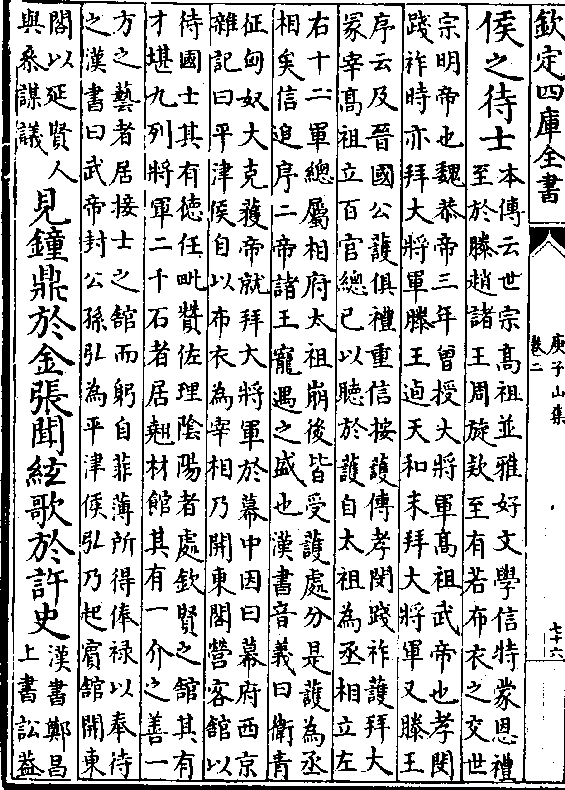 欽定四庫全書
庚子山集
卷二
七十六
侯之待士
本傳云世宗髙祖並雅好文學信特蒙恩禮
至於滕趙諸王周旋欵至有若布衣之交世
宗明帝也魏恭帝三年曾授大將軍髙祖武帝也孝閔
踐祚時亦拜大將軍滕王逌天和末拜大將軍又滕王
序云及晉國公護俱禮重信按護傳孝閔踐祚護拜大
冡宰髙祖立百官總已以聽於護自太祖為丞相立左
右十二軍總屬相府太祖崩後皆受護處分是護為丞
相矣信逌序二帝諸王寵遇之盛也漢書音義曰衛青
征匈奴大克獲帝就拜大將軍於幕中因曰幕府西京
雜記曰平津侯自以布衣為宰相乃開東閤營客舘以
待國士其有徳任毗贊佐理隂陽者處欽賢之舘其有
才堪九列將軍二千石者居翹材舘其有一介之善一
方之藝者居接士之舘而躬自菲薄所得俸禄以奉待
之漢書曰武帝封公孫弘為平津侯弘乃起賓舘開東
閤以延賢人
與叅謀議
見鐘鼎於金張聞絃歌於許史
漢書鄭昌
上書訟葢